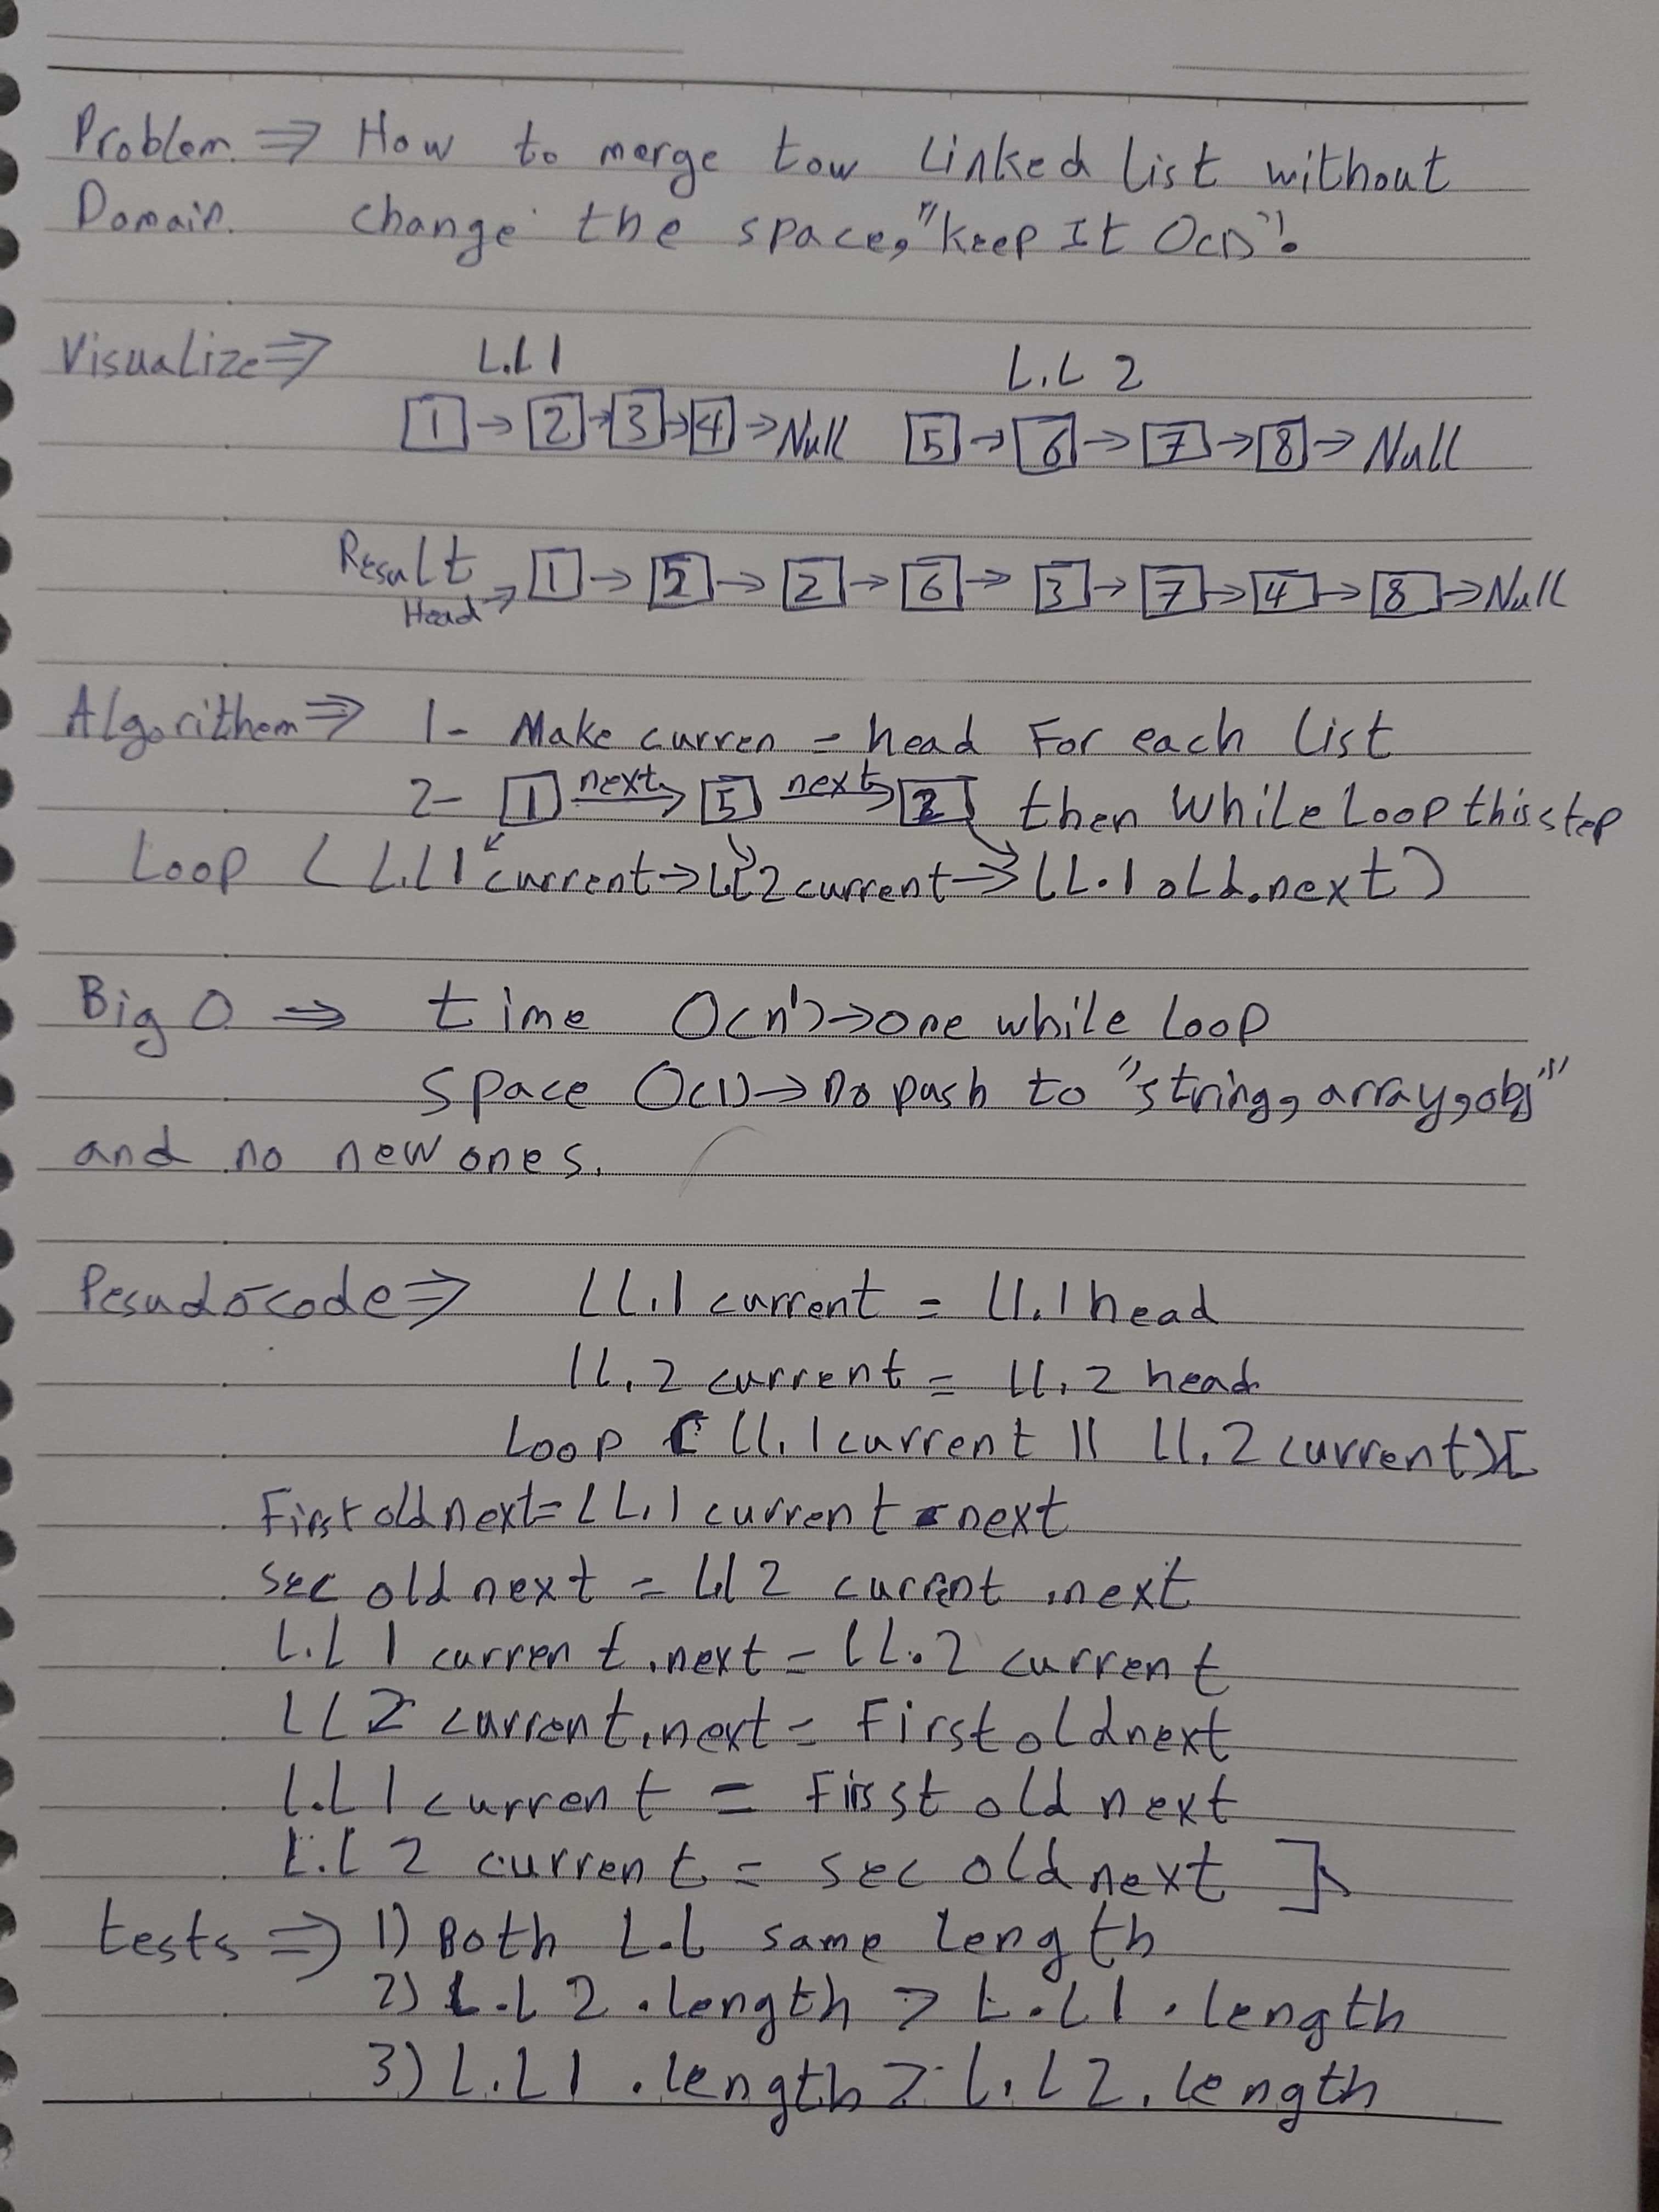 Problem ⇒ How to merge tow Linked List without
Domain. change the space, "keep It O(1)".
Visualize ⇒ L.L 1 L.L 2
[1] → [2] → [3] → [4] → Null [5] → [6] → [7] → [8] → Null
Result
Head → [1] → [5] → [2] → [6] → [3] → [7] → [4] → [8] → Null
Algorithem ⇒ 1- Make curren = head For each List
2- [1] next→ [5] next→ [2] then While Loop this step
Loop ( L.L1 current → L.L2 current → LL.1 old.next )
Big O ⇒ time O(n¹) → one while loop
space O(1) → no push to "string, array, obj"
and no new ones.
Pesudo-code ⇒ LL.1 current = LL.1 head
LL.2 current = LL.2 head
Loop ( LL.1 current || LL.2 current)[
First old next = LL.1 current . next
sec old next = L.L 2 current .next
L.L 1 current .next = LL.2 current
LL2 current.next = First old next
L.L 1 current = First old next
L.L 2 current = sec old next ]
tests ⇒ 1) Both L.L same length
2) L.L 2 .length > L.L 1 . length
3) L.L 1 .length > L.L 2. length